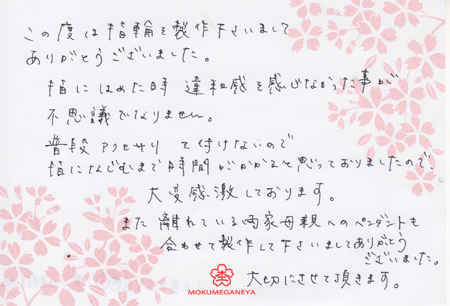 この度は指輪を製作下さいまして
ありがとうございました。
指にはめた時 違和感を感じなかった事が
不思議でなりません。
普段 アクセサリーを付けないので
指になじむまで時間がかかると思っておりましたので、
大変感激しております。
また 離れている両家母親へのペンダントも
合わせて製作して下さいましてありがとう
ございました。
大切にさせて頂きます。
MOKUMEGANEYA